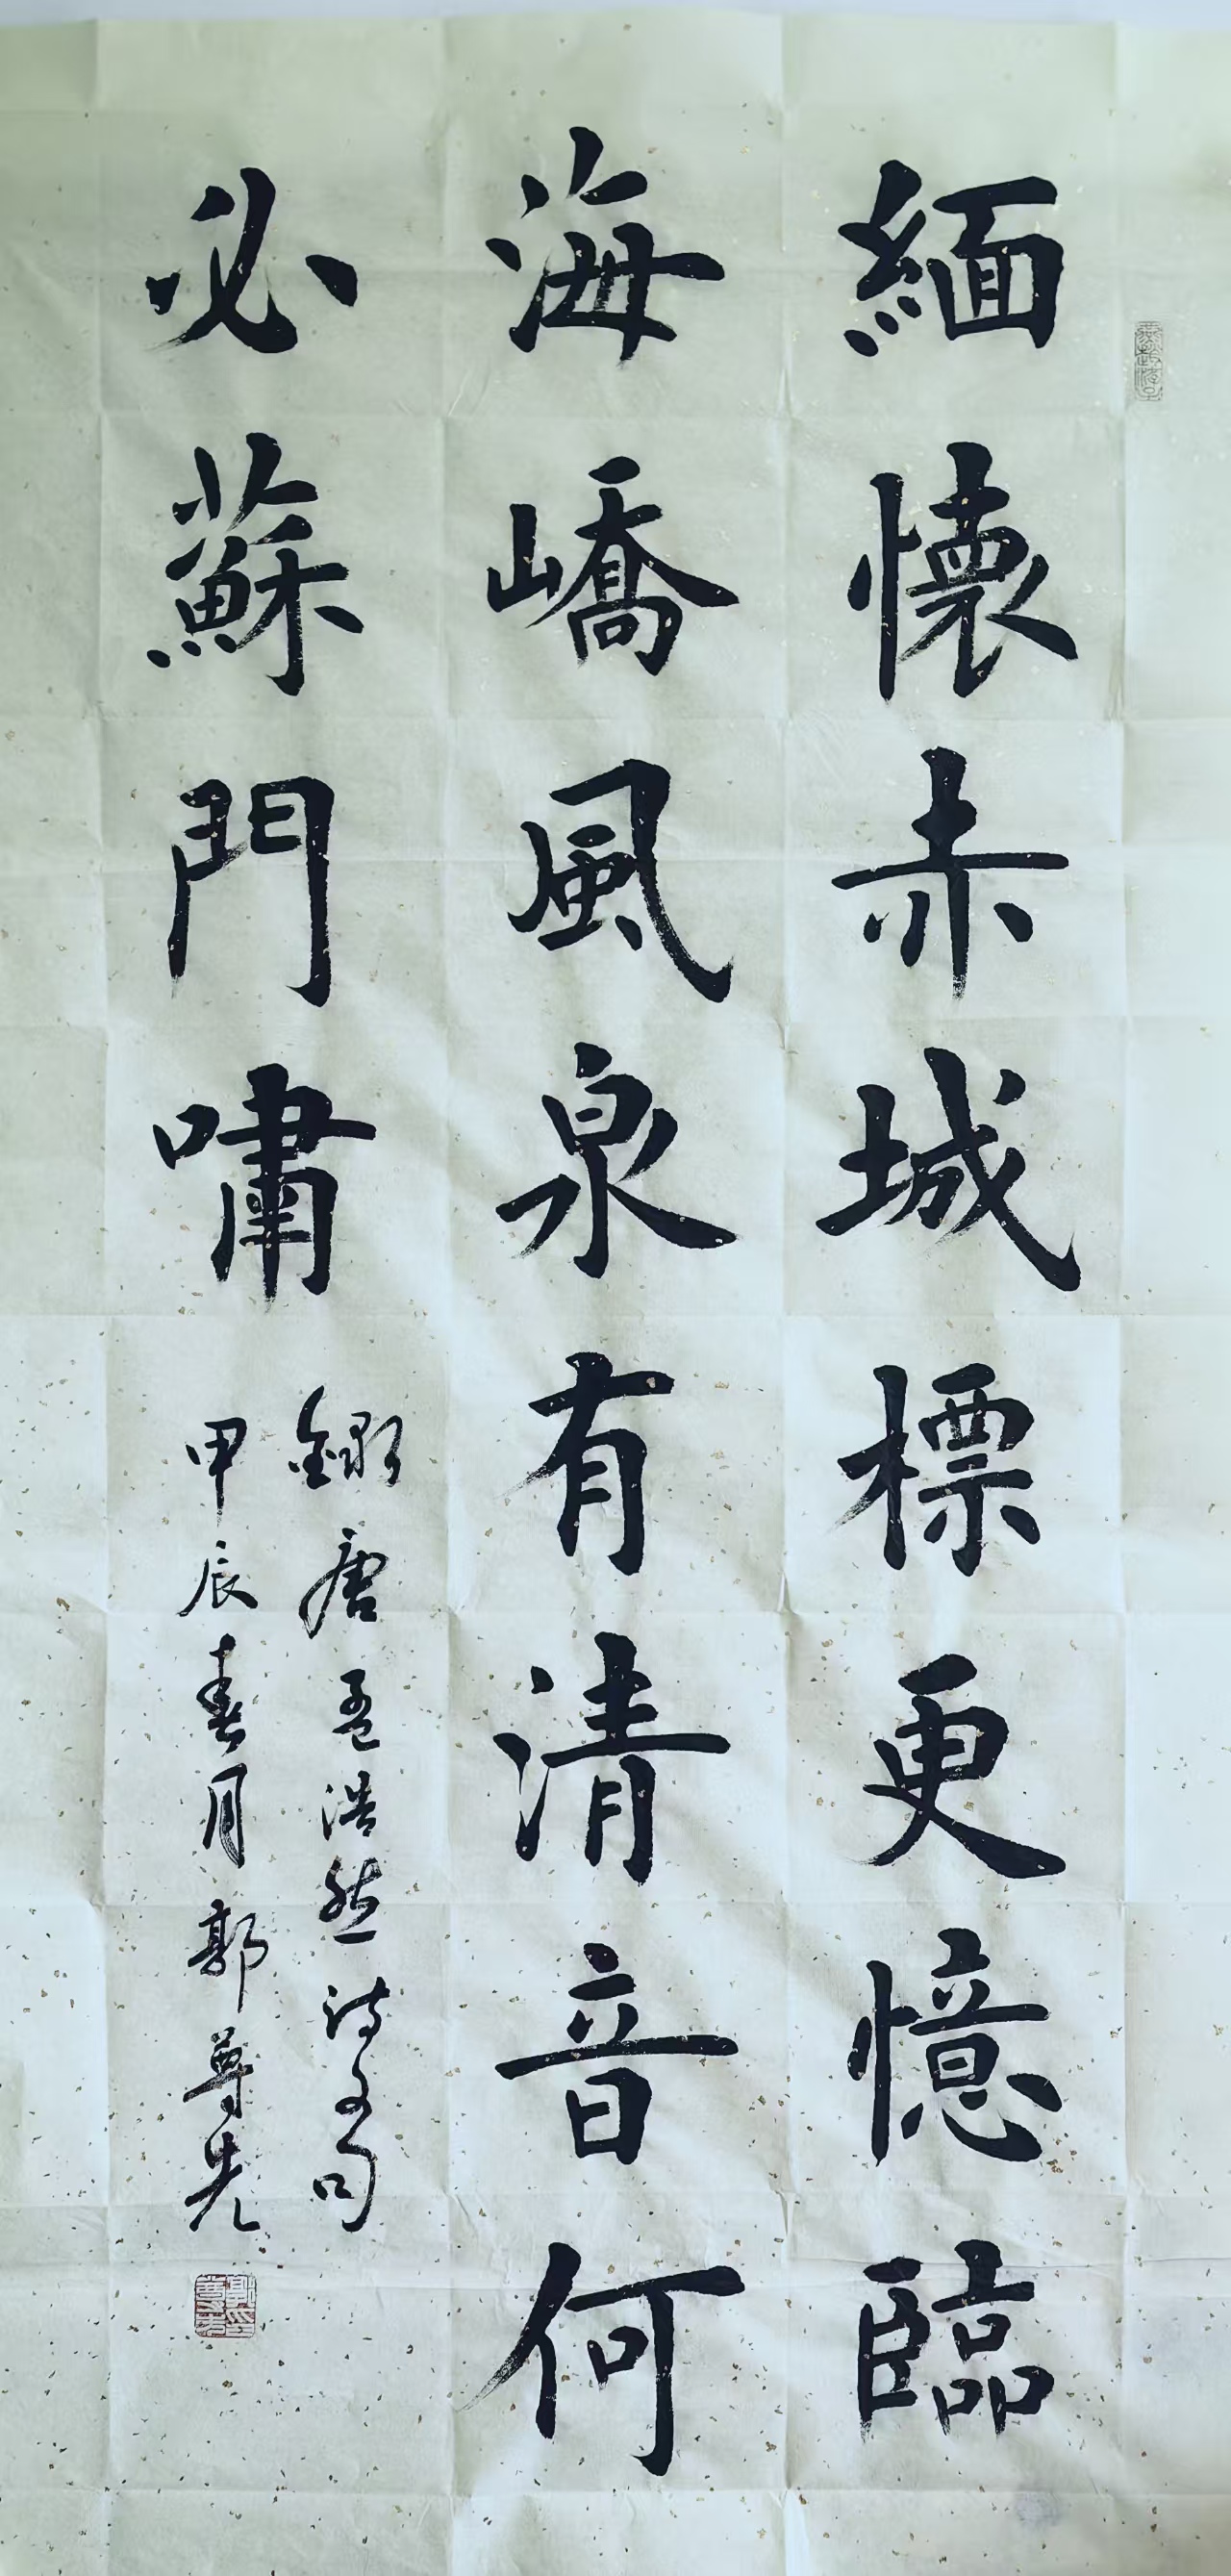 緬懷赤城標更憶臨
海嶠風泉有清音何
必蘇門嘯
錄唐孟浩然詩文句
甲辰春月郭尊先